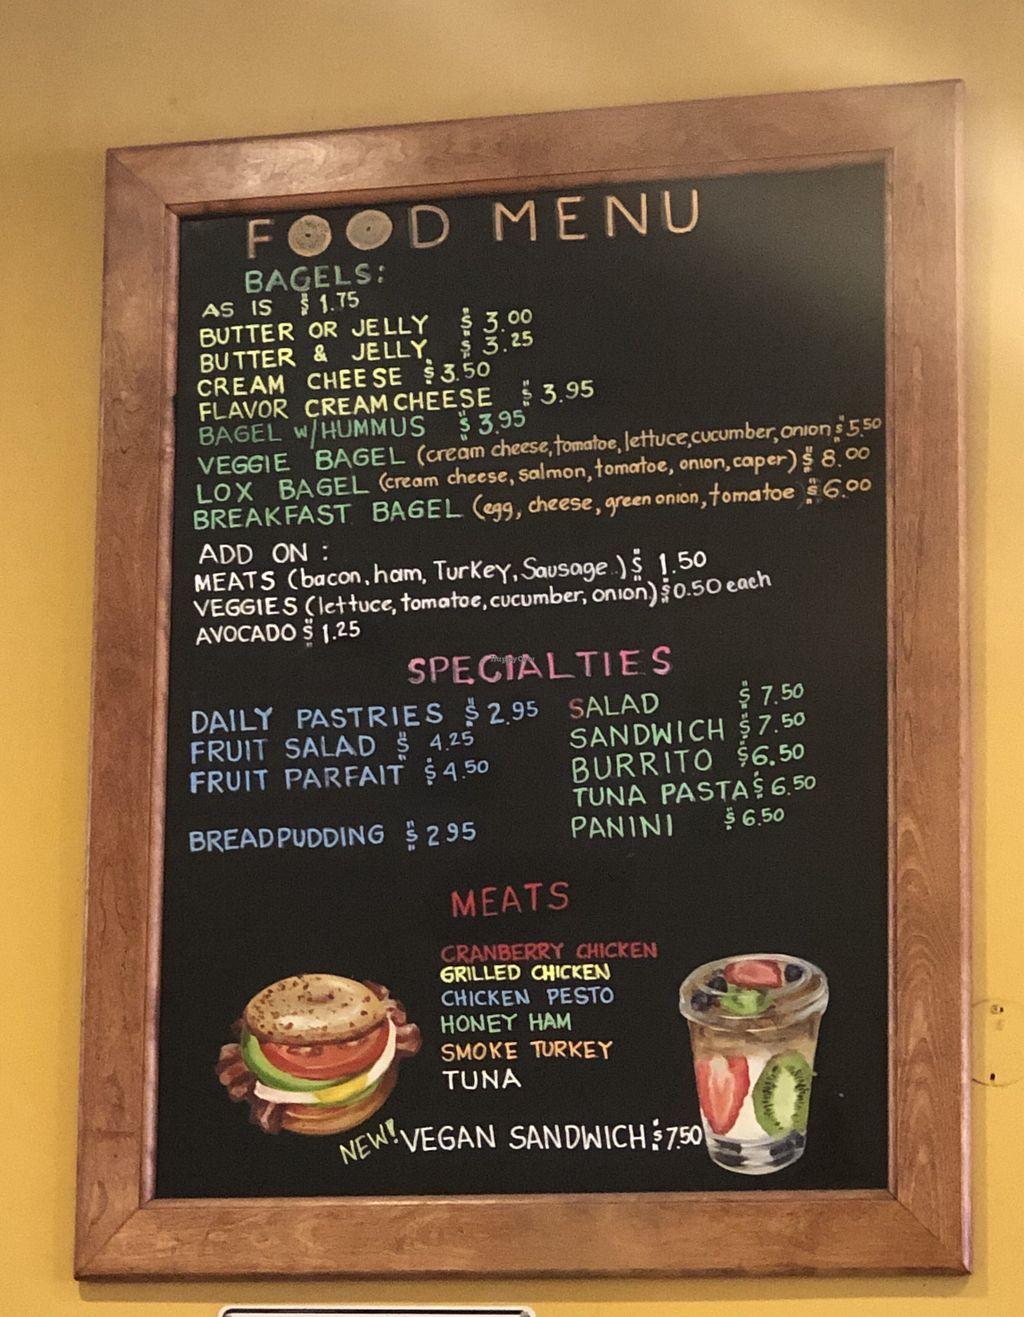 FOOD MENU
BAGELS:
AS IS $1.75
BUTTER OR JELLY $3.00
BUTTER & JELLY $3.25
CREAM CHEESE $3.50
FLAVOR CREAM CHEESE $3.95
BAGEL w/HUMMUS $3.95
VEGGIE BAGEL (cream cheese, tomatoe, lettuce, cucumber, onion $5.50
LOX BAGEL (cream cheese, salmon, tomatoe, onion, caper) $8.00
BREAKFAST BAGEL (egg, cheese, green onion, tomatoe $6.00
ADD ON:
MEATS (bacon, ham, Turkey, Sausage) $1.50
VEGGIES (lettuce, tomatoe, cucumber, onion) $0.50 each
AVOCADO $1.25
SPECIALTIES
HappyCow
DAILY PASTRIES $2.95
FRUIT SALAD $4.25
FRUIT PARFAIT $4.50
BREADPUDDING $2.95
SALAD $7.50
SANDWICH $7.50
BURRITO $6.50
TUNA PASTA $6.50
PANINI $6.50
MEATS
CRANBERRY CHICKEN
GRILLED CHICKEN
CHICKEN PESTO
HONEY HAM
SMOKE TURKEY
TUNA
NEW! VEGAN SANDWICH $7.50